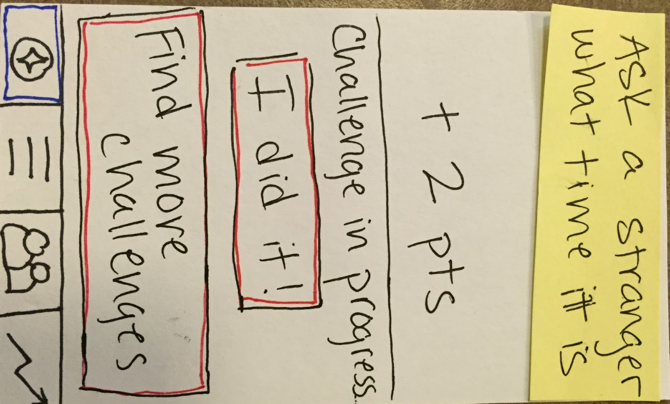 Ask a stranger
what time it is
+ 2 pts
Challenge in progress...
I did it!
Find more
challenges